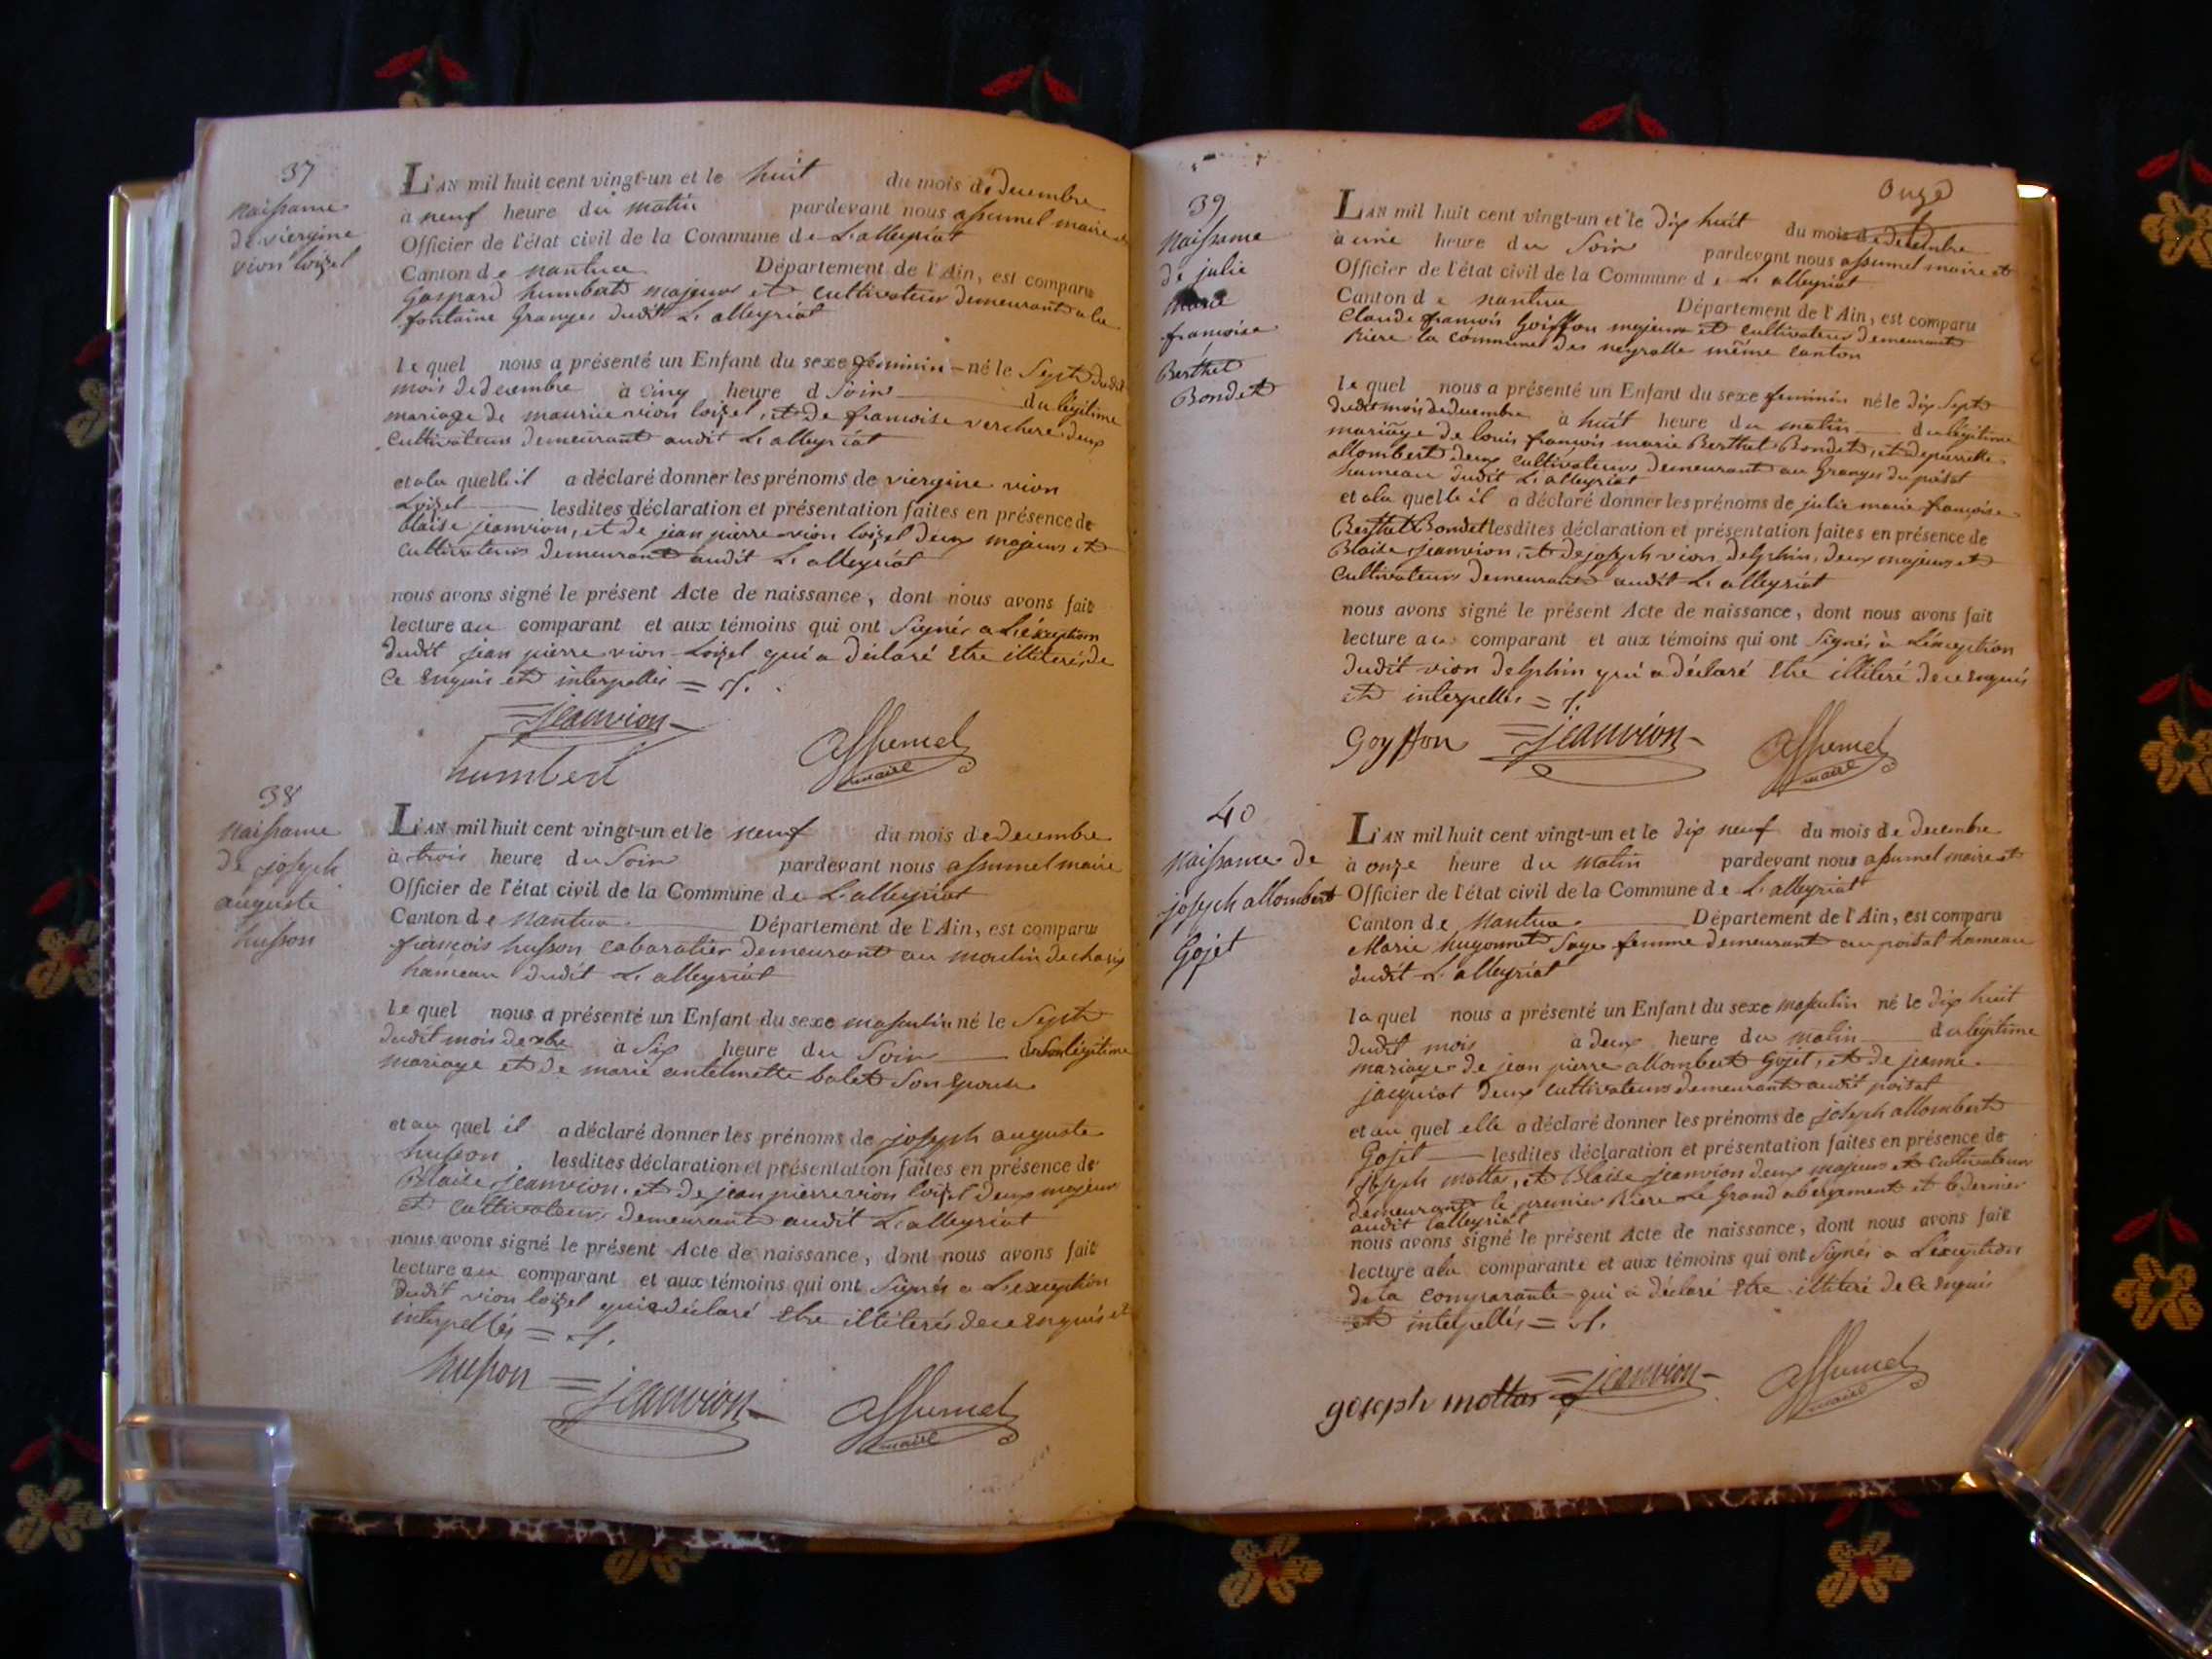 37
Naissance
de viergine
vion loizel
L'AN mil huit cent vingt-un et le huit du mois de decembre
à neuf heure du matin pardevant nous assumel maire et
Officier de l'état civil de la Commune de L'alleyriat
Canton de nantua Département de l'Ain, est comparu
Gaspard humbert majeur et cultivateur demeurant a la
fontaine Granges dudit L'alleyriat
le quel nous a présenté un Enfant du sexe feminin né le Sept dudit
mois de decembre à cinq heure d Soir du légitime
mariage de maurice vion loizel, et de francoise verchere deux
cultivateurs demeurant audit L'alleyriat
et a la quelle il a déclaré donner les prénoms de viergine vion
Loizel lesdites déclaration et présentation faites en présence de
Blaise jeanvion, et de jean pierre vion loizel deux majeurs et
cultivateurs demeurant audit L'alleyriat
nous avons signé le présent Acte de naissance, dont nous avons fait
lecture au comparant et aux témoins qui ont Signés a L'exception
dudit jean pierre vion Loizel qui a déclaré Etre illiteré, de
ce enquis et interpellés = ./.
jeanvion
humbert
assumel
maire
38
Naissance
de joseph
auguste
husson
L'AN mil huit cent vingt-un et le neuf du mois de decembre
à trois heure du Soir pardevant nous assumel maire
Officier de l'état civil de la Commune de L'alleyriat
Canton de Nantua Département de l'Ain, est comparu
françois husson cabaratier demeurant au moulin de charix
hameau dudit L'alleyriat
le quel nous a présenté un Enfant du sexe masculin né le Sept
dudit mois de xbre à Six heure du Soir du Son légitime
mariage et de marie antelmette balet Son Epouse
et au quel il a déclaré donner les prénoms de joseph auguste
husson. lesdites déclaration et présentation faites en présence de
Blaise jeanvion, et de jean pierre vion loizel deux majeurs
et cultivateurs demeurant audit L'alleyriat
nous avons signé le présent Acte de naissance, dont nous avons fait
lecture au comparant et aux témoins qui ont Signés a L'exception
dudit vion loizel qui a déclaré Etre illiterés de ce Enquis et
interpellés = ./.
husson
jeanvion
assumel
maire
39
Naissance
de julie
marie
françoise
Berthet
Bondet
Onze
L'AN mil huit cent vingt-un et le dix huit du mois de decembre
à une heure du Soir pardevant nous assumel maire et
Officier de l'état civil de la Commune de L'alleyriat
Canton de nantua Département de l'Ain, est comparu
Claude françois Goiffon majeur et cultivateur demeurant
Riere la commune des neyrolle même canton
le quel nous a présenté un Enfant du sexe feminin né le dix Sept
dudit mois de decembre à huit heure du matin du légitime
mariage de louis françois marie Berthet Bondet, et de pierrette
allombert deux cultivateurs demeurant au Granges du poisat
hameau dudit L'alleyriat
et a la quelle il a déclaré donner les prénoms de julie marie françoise
Berthet Bondet lesdites déclaration et présentation faites en présence de
Blaise jeanvion, et de joseph vion delphin, deux majeurs et
Cultivateurs demeurant audit L'alleyriat
nous avons signé le présent Acte de naissance, dont nous avons fait
lecture au comparant et aux témoins qui ont Signés à L'éxception
dudit vion delphin qui a déclaré Etre illiteré de ce enquis
et interpellés = ./.
Goyffon
jeanvion
assumel
maire
40
Naissance de
joseph allombert
Gojet
L'AN mil huit cent vingt-un et le dix neuf du mois de decembre
à onze heure du Matin pardevant nous assumel maire et
Officier de l'état civil de la Commune de L'alleyriat
Canton de Nantua Département de l'Ain, est comparu
Marie hugonnet Sage femme demeurant au poisat hameau
dudit L'alleyriat
la quel nous a présenté un Enfant du sexe masculin né le dix huit
dudit mois à deux heure du matin du légitime
mariage de jean pierre allombert Gojet, et de jeanne
jacquiot deux cultivateurs demeurant audit poisat
et au quel elle a déclaré donner les prénoms de joseph allombert
Gojet lesdites déclaration et présentation faites en présence de
joseph mottas, et Blaise jeanvion deux majeurs et cultivateurs
demeurant le premier Riere Le Grand abergement et le dernier
audit L'alleyriat
nous avons signé le présent Acte de naissance, dont nous avons fait
lecture a la comparante et aux témoins qui ont Signés a L'exception
de la comparante qui a déclaré Etre illiteré de ce enquis
et interpellés = ./.
goseph mottas
jeanvion
assumel
maire